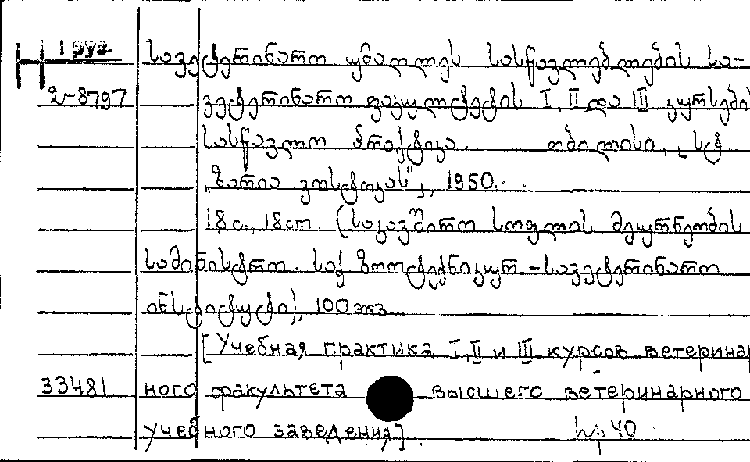 1 груз.
სავეტერინარო უმაღლეს სასწავლებლების სა-
2-8797 ვეტერინარო ფაკულტეტის I, II და III კურსების
სასწავლო პრაქტიკა. თბილისი, სტ.
„ზარია ვოსტოკას", 1950.
18 გ., 18 სთ. (საკავშირო სოფლის მეურნეობის
სამინისტრო. საქ. ზოოტექნიკურ-სავეტერინარო
ინსტიტუტი), 100 экз
[Учебная практика I, II и III курсов ветеринар
33481 ного факультета высшего ветеринарного
учебного заведения].